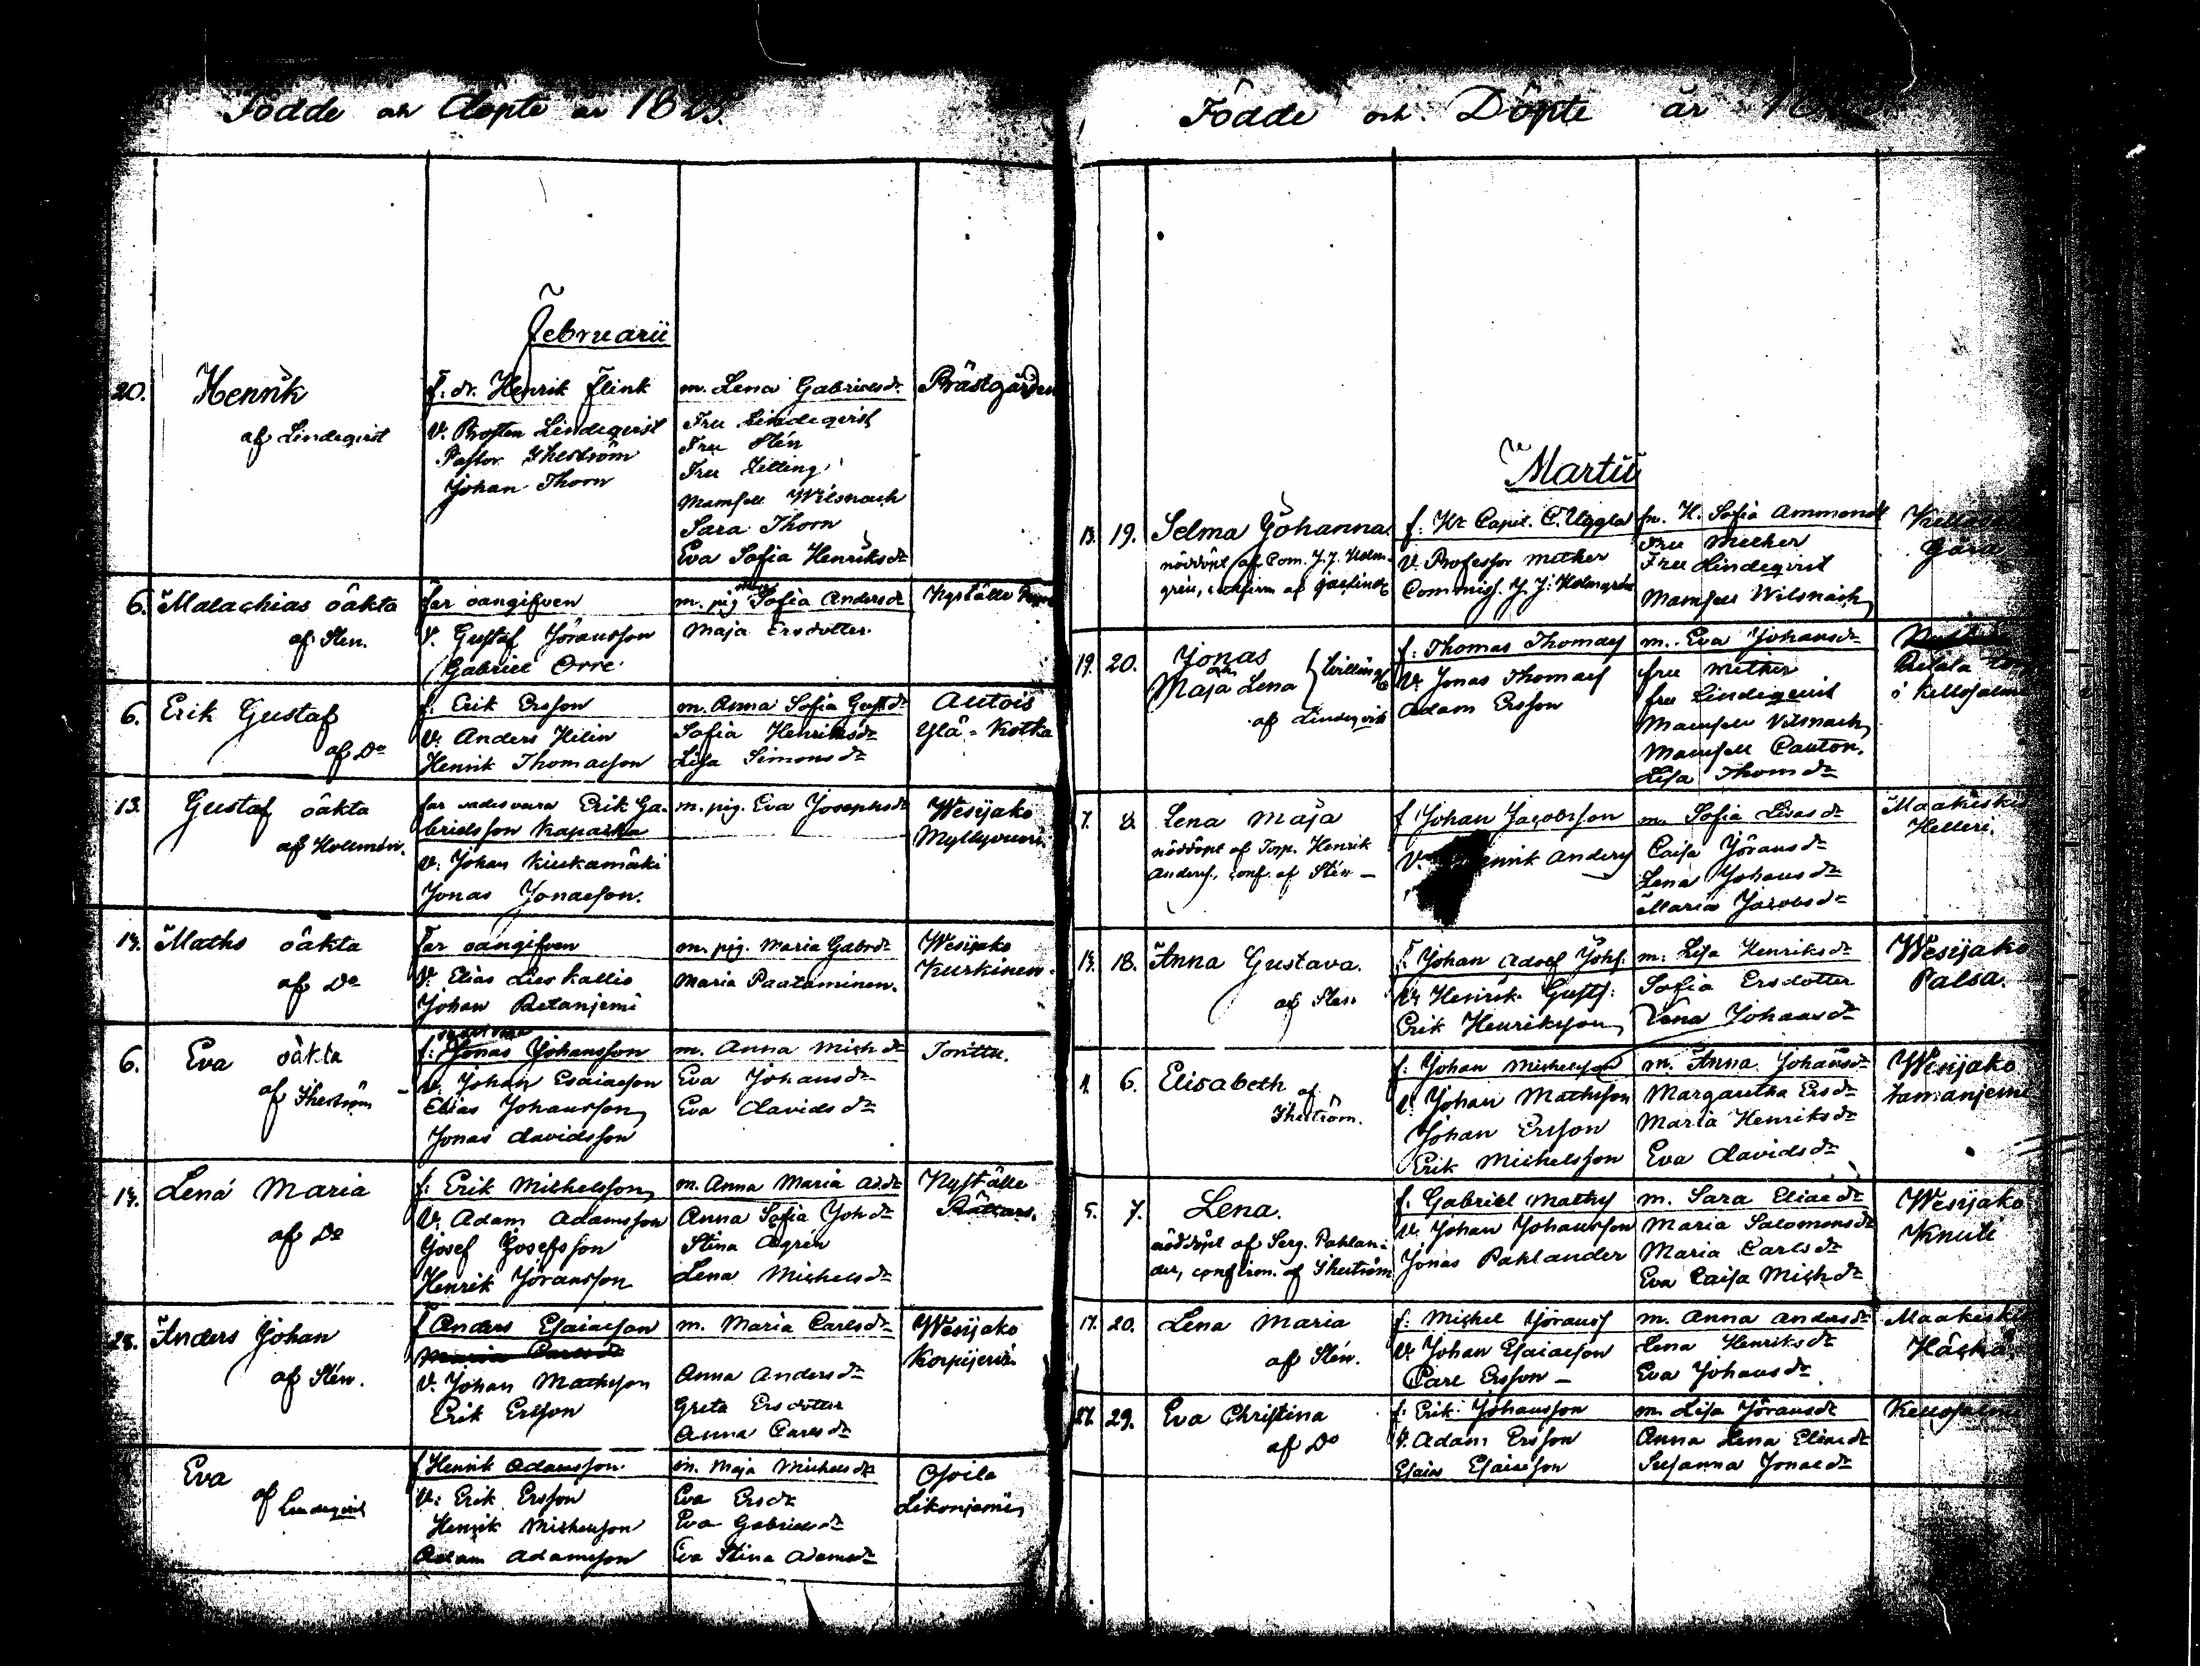 Födde och döpte år 1825.
Februarii
20. Henrik
af Lindeqvist
f. dr. Henrik Flink
V. Prosten Lindeqvist
Pastor Theström
Johan Thorn
m. Lena Gabrielsdr
Fru Lindeqvist
Fru Stén
Fru Zitting
Mamsell Wilsnach
Sara Thorn
Eva Sofia Henriksdr
Prästgården
6. Malachias oäkta
af Sten.
far oangifven
V. Gustaf Jöransson
Gabriel Orre
m. pig Sofia Andersdr
Maja Ersdotter.
Kyrkälle
6. Erik Gustaf
af Do
f. Erik Ersson
V. Anders Hilin
Henrik Thomasson
m. Anna Sofia Gustdr
Sofia Henriksdr
Lisa Simonsdr
Autois
Ylä-Kotka
13. Gustaf oäkta
af Hollmén.
far vara Erik Ga-
brielsson Kaparka
V. Johan Kiukamäki
Jonas Jonasson.
m. pig. Eva Josephsdr
Wesijako
Myllyvuori
14. Maths oäkta
af Do
far oangifven
V. Elias Lieskallio
Johan Retanjemi
m. pig. Maria Gabrdr
Maria Paataminen.
Wesijako
Kurkinen.
6. Eva oäkta
af Theström
f: Jonas Johansson
V. Johan Esaiasson
Elias Johansson
Jonas Davidsson
m. Anna Michdr
Eva Johansdr
Eva Davidsdr
Torittu.
14. Lena Maria
af Do
f: Erik Michelsson
V. Adam Adamsson
Josef Josefsson
Henrik Jöransson
m. Anna Maria Addr
Anna Sofia Johdr
Stina Ågrén
Lena Michelsdr
Kyrkälle
28. Anders Johan
af Stén.
f Anders Esaiasson
Maria Carlsdr
V. Johan Mathsson
Erik Ersson
m. Maria Carlsdr
Anna Andersdr
Greta Ersdotter
Anna Carlsdr
Wesijako
Korpijervi
Eva
af Lindeqvist
f Henrik Adamsson
V: Erik Ersson
Henrik Michelsson
Adam Adamsson
m. Maja Michelsdr
Eva Ersdr
Eva Gabrielsdr
Eva Stina Adamsdr
Osoila
Likonjemi
Födde och Döpte år
Martii
13. 19. Selma Johanna
nöddöpt af Com. J. J. Holm-
grén,
f: Hr Capit. C. Uggla
V. Professor Mether
Commiss. J. J. Holmgrén
fr. H. Sofia Ammondt
Fru Mether
Fru Lindeqvist
Mamsell Wilsnach
gård
19. 20. Jonas
och Maja Lena } tvilling
af Lindeqvist
f: Thomas Thomass
V. Jonas Thomass
Adam Ersson
m. Eva Johansdr
fru Mether
fru Lindeqvist
Mamsell Vilsnach
Mamsell Cautón.
Lisa Thomdr
i Kellosalmi
7. 8. Lena Maja
nöddöpt af Torp. Henrik
Anders., conf. af Stén –
f Johan Jacobsson
V. Henrik Anderss
m. Sofia Lisasdr
Caisa Jöransdr
Lena Johansdr
Maria Jacobsdr
Maakeski
Helleri.
14. 18. Anna Gustava.
af Sten
f. Johan Adolf Johs.
V. Henrik Gusts:
Erik Henriksson
m: Lisa Henriksdr
Sofia Ersdotter
Lena Johansdr
Wesijako
Palsa.
4. 6. Elisabeth af
Theström.
f: Johan Michelsson
V. Johan Mathsson
Johan Ersson
Erik Michelsson
m. Anna Johansdr
Margaretha Ersdr
Maria Henriksdr
Eva Davidsdr
Wesijako
Lamanjemi
5. 7. Lena.
nöddöpt af Serg. Pahlan-
der, confirm. af Theström
f. Gabriel Mathss
V. Johan Johansson
Jonas Pahlander
m. Sara Eliaedr
Maria Salomonsdr
Maria Carlsdr
Eva Caisa Michdr
Wesijako
Knuti
17. 20. Lena Maria
af Stén.
f: Michel Jöranss
V. Johan Esaiasson
Carl Ersson –
m. Anna Andersdr
Lena Henriksdr
Eva Johansdr
Maakeski
Häckä
27. 29. Eva Christina
af Do
f: Erik Johansson
V. Adam Ersson
Esaias Esaiesson
m. Lisa Jöransdr
Anna Lena Eliaedr
Susanna Jonaedr
Kellosalmi